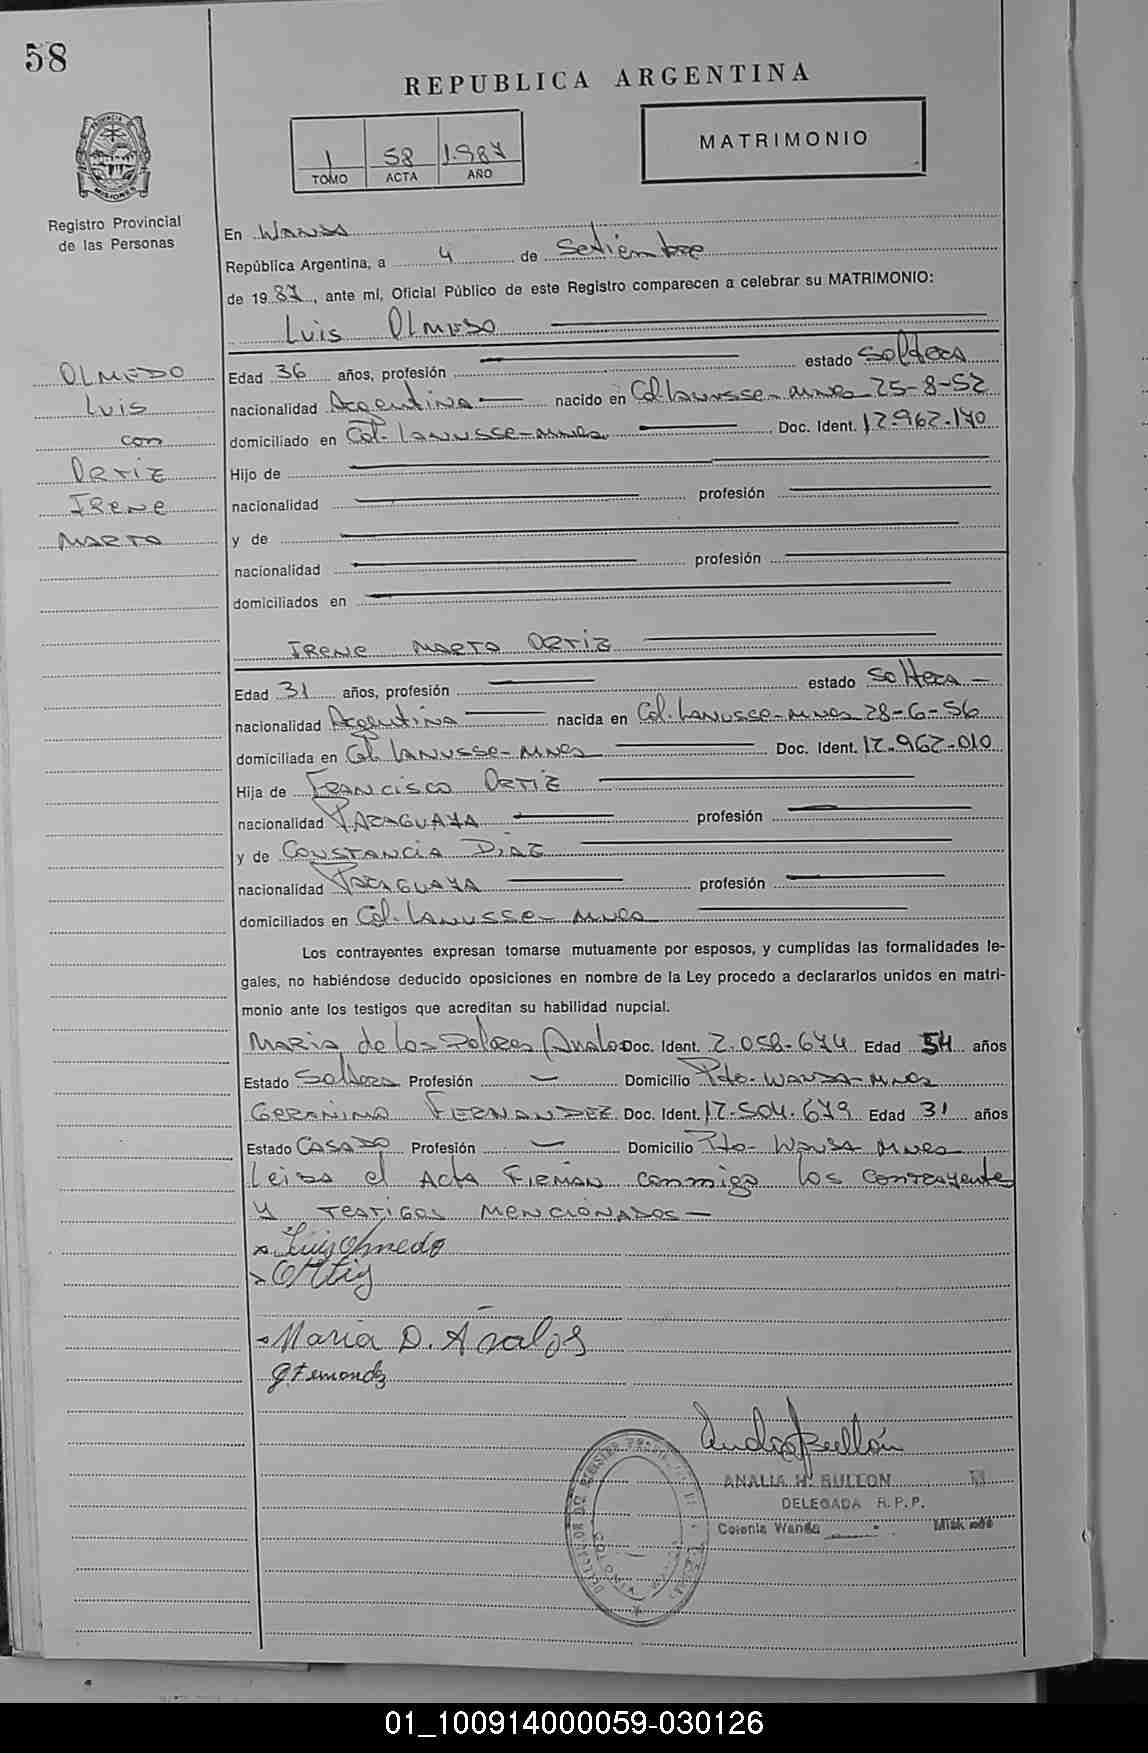 58
REPUBLICA ARGENTINA
MATRIMONIO
1 58 1.987
TOMO ACTA AÑO
PROVINCIA MISIONES
Registro Provincial
de las Personas
En Wanda
República Argentina, a 4 de Setiembre
de 19 87, ante mí, Oficial Público de este Registro comparecen a celebrar su MATRIMONIO:
Luis Olmedo
OLMEDO
Luis
con
Ortiz
Irene
Marta
Edad 36 años, profesión estado Soltero
nacionalidad Argentina nacido en Col. Lanusse-Mnes 25-8-52
domiciliado en Col. Lanusse-Mnes Doc. Ident. 12.962.170
Hijo de
nacionalidad profesión
y de
nacionalidad profesión
domiciliados en
Irene Marta Ortiz
Edad 31 años, profesión estado Soltera -
nacionalidad Argentina nacida en Col. Lanusse-Mnes 28-6-56
domiciliada en Col. Lanusse-Mnes Doc. Ident. 12.962.010
Hija de Francisco Ortiz
nacionalidad Paraguaya profesión
y de Constancia Diaz
nacionalidad Paraguaya profesión
domiciliados en Col. Lanusse - Mnes
Los contrayentes expresan tomarse mutuamente por esposos, y cumplidas las formalidades le-
gales, no habiéndose deducido oposiciones en nombre de la Ley procedo a declararlos unidos en matri-
monio ante los testigos que acreditan su habilidad nupcial.
Maria de los Dolores Doc. Ident. 2.058.674 Edad 54 años
Estado Soltera Profesión - Domicilio Pto-Wanda-Mnes
Geranimo Fernandez Doc. Ident. 12.504.679 Edad 31 años
Estado Casado Profesión - Domicilio Pto- Wanda Mnes
Leida el Acta Firman conmigo los contrayentes
y testigos mencionados -
Luis Olmedo
Ortiz
Maria D. Añalos
G. Fernandez
ANALIA H. BULLON
DELEGADA R.P.P.
Colonia Wanda
01_100914000059-030126